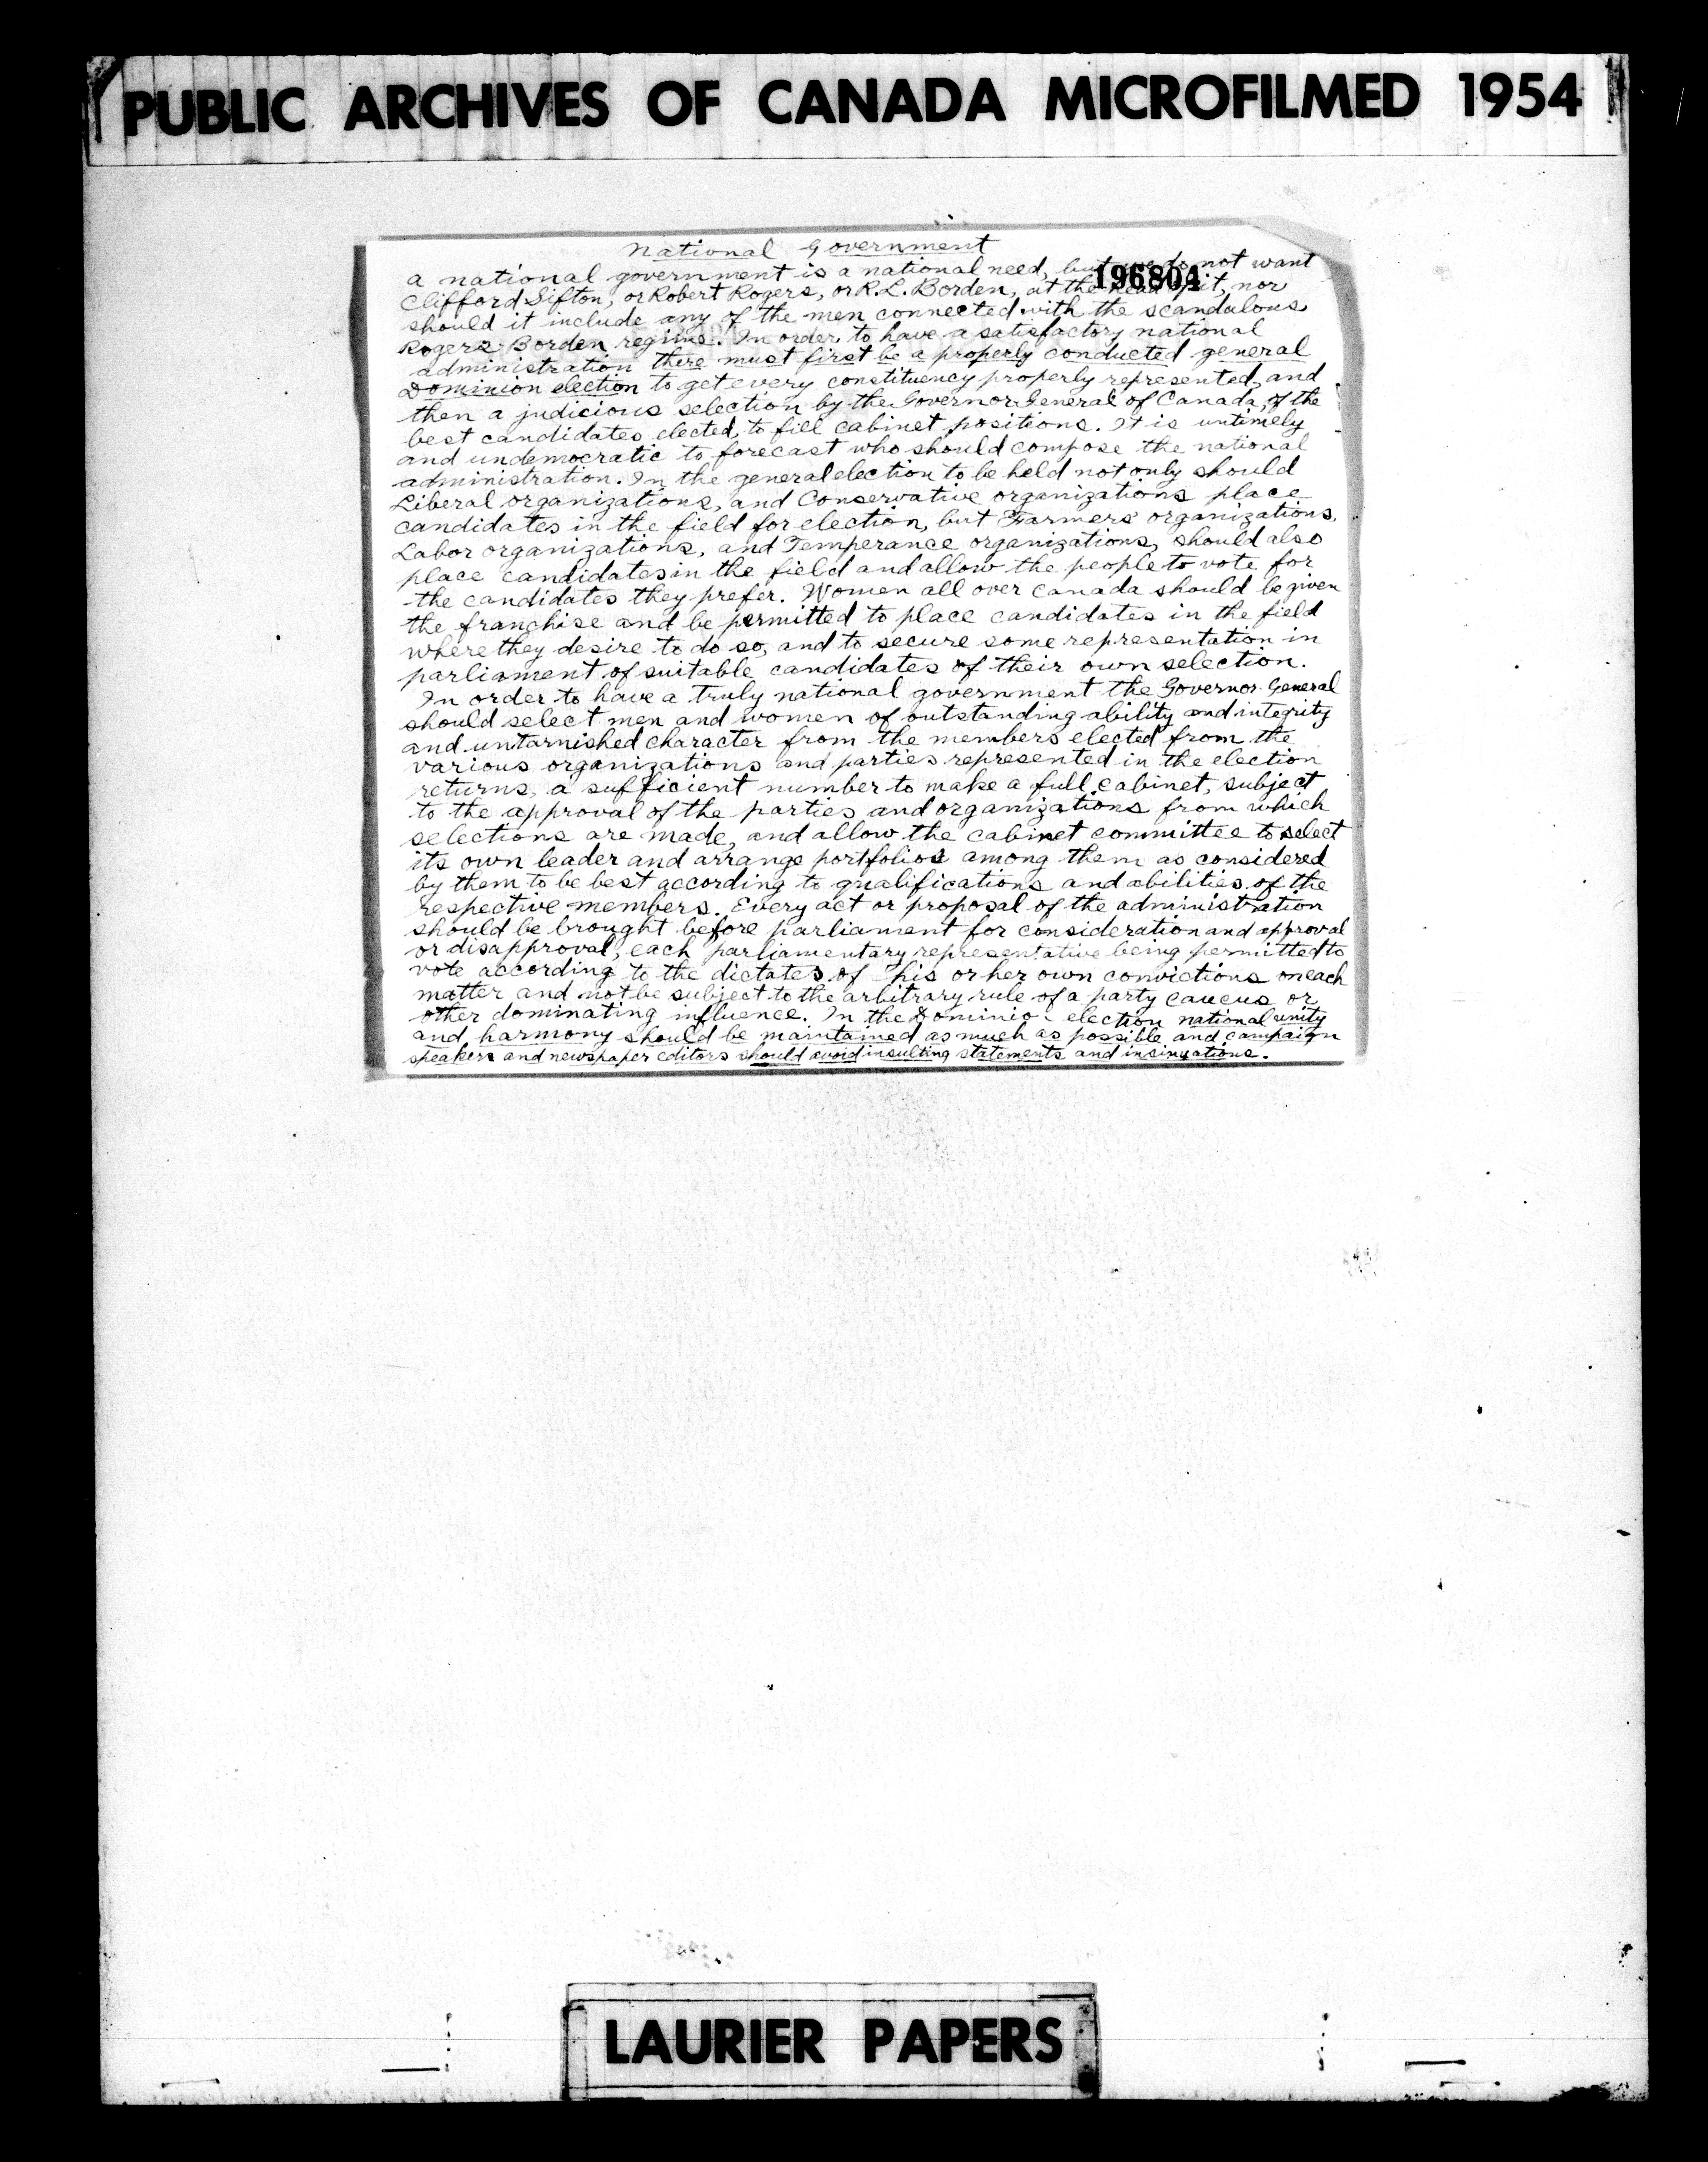 PUBLIC ARCHIVES OF CANADA MICROFILMED 1954
National Government
196804
a national government is a national need, but we do not want
Clifford Sifton, or Robert Rogers, or R.L. Borden, at the head of it, nor
should it include any of the men connected with the scandalous
Rogers-Borden regime. In order to have a satisfactory national
administration there must first be a properly conducted general
Dominion election to get every constituency properly represented, and
then a judicious selection by the Governor General of Canada, of the
best candidates elected, to fill cabinet positions. It is untimely
and undemocratic to forecast who should compose the national
administration. In the general election to be held not only should
Liberal organizations, and Conservative organizations place
candidates in the field for election, but Farmers' organizations,
Labor organizations, and Temperance organizations, should also
place candidates in the field and allow the people to vote for
the candidates they prefer. Women all over Canada should be given
the franchise and be permitted to place candidates in the field
where they desire to do so, and to secure some representation in
parliament of suitable candidates of their own selection.
In order to have a truly national government the Governor General
should select men and women of outstanding ability and integrity
and untarnished character from the members elected from the
various organizations and parties represented in the election
returns, a sufficient number to make a full cabinet, subject
to the approval of the parties and organizations from which
selections are made, and allow the cabinet committee to select
its own leader and arrange portfolios among them as considered
by them to be best according to qualifications and abilities of the
respective members. Every act or proposal of the administration
should be brought before parliament for consideration and approval
or disapproval, each parliamentary representative being permitted to
vote according to the dictates of his or her own convictions on each
matter and not be subject to the arbitrary rule of a party caucus or
other dominating influence. In the Dominion election national unity
and harmony should be maintained as much as possible and campaign
speakers and newspaper editors should avoid insulting statements and insinuations.
LAURIER PAPERS